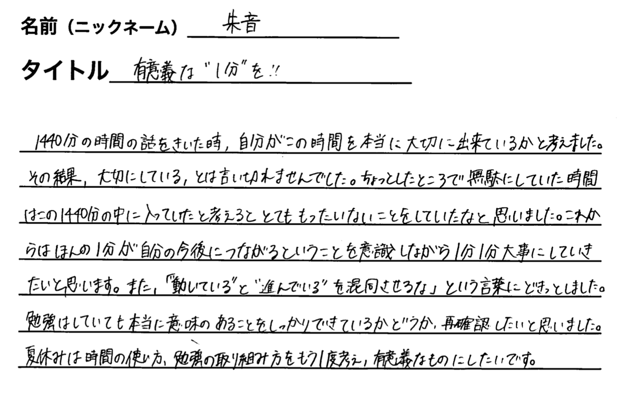 名前（ニックネーム） 朱音
タイトル 有意義な"1分"を!!
1440分の時間の話をきいた時，自分がこの時間を本当に大切に出来ているかと考えました。
その結果，大切にしている，とは言い切れませんでした。ちょっとしたところで無駄にしていた時間
はこの1440分の中に入っていたと考えるととてももったいないことをしていたなと思いました。これか
らはほんの1分が自分の今後につながるということを意識しながら1分1分大事にしていき
たいと思います。また，「"動いている"と"進んでいる"を混同させるな」という言葉にどきっとしました。
勉強はしていても本当に意味のあることをしっかりできているかどうか，再確認したいと思いました。
夏休みは時間の使い方，勉強の取り組み方をもう1度考え，有意義なものにしたいです。